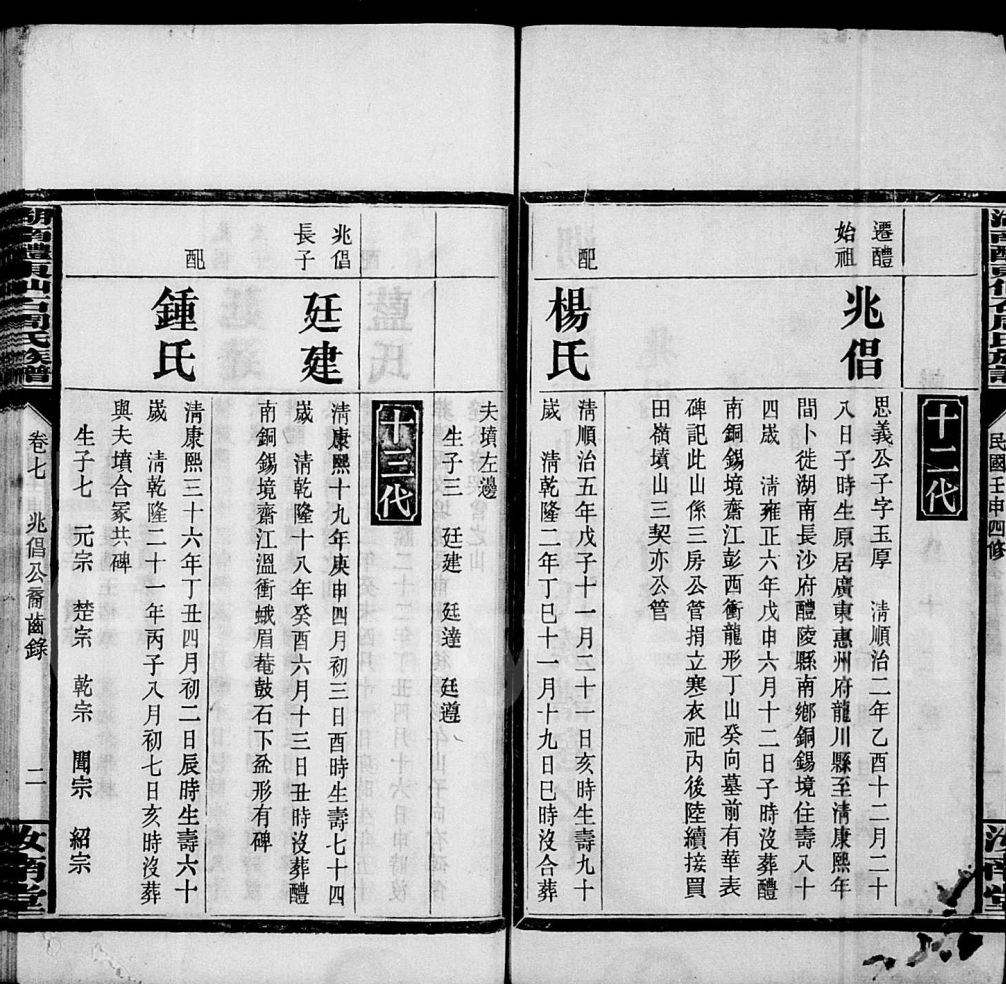 民國壬申四修
十二代
遷醴
始祖
兆倡
思義公子字玉厚 清順治二年乙酉十二月二十
八日子時生原居廣東惠州府龍川縣至清康熙年
間卜徙湖南長沙府醴陵縣南鄉銅錫境住壽八十
四歲 清雍正六年戊申六月十二日子時沒葬醴
南銅錫境齋江彭西衝龍形丁山癸向墓前有華表
碑記此山係三房公管捐立寒衣祀內後陸續接買
田嶺墳山三契亦公管
配
楊氏
清順治五年戊子十一月二十一日亥時生壽九十
歲 清乾隆二年丁巳十一月十九日巳時沒合葬
夫墳左邊
生子三 廷建 廷達 廷遵
十三代
兆倡
長子
廷建
清康熙十九年庚申四月初三日酉時生壽七十四
歲 清乾隆十八年癸酉六月十三日丑時沒葬醴
南銅錫境齋江溫衝蛾眉菴鼓石下盆形有碑
配
鍾氏
清康熙三十六年丁丑四月初二日辰時生壽六十
歲 清乾隆二十一年丙子八月初七日亥時沒葬
與夫墳合冢共碑
生子七 元宗 楚宗 乾宗 閶宗 紹宗
湖南醴東仙石周氏族譜
卷七 兆倡公裔齒錄
二
汝南堂